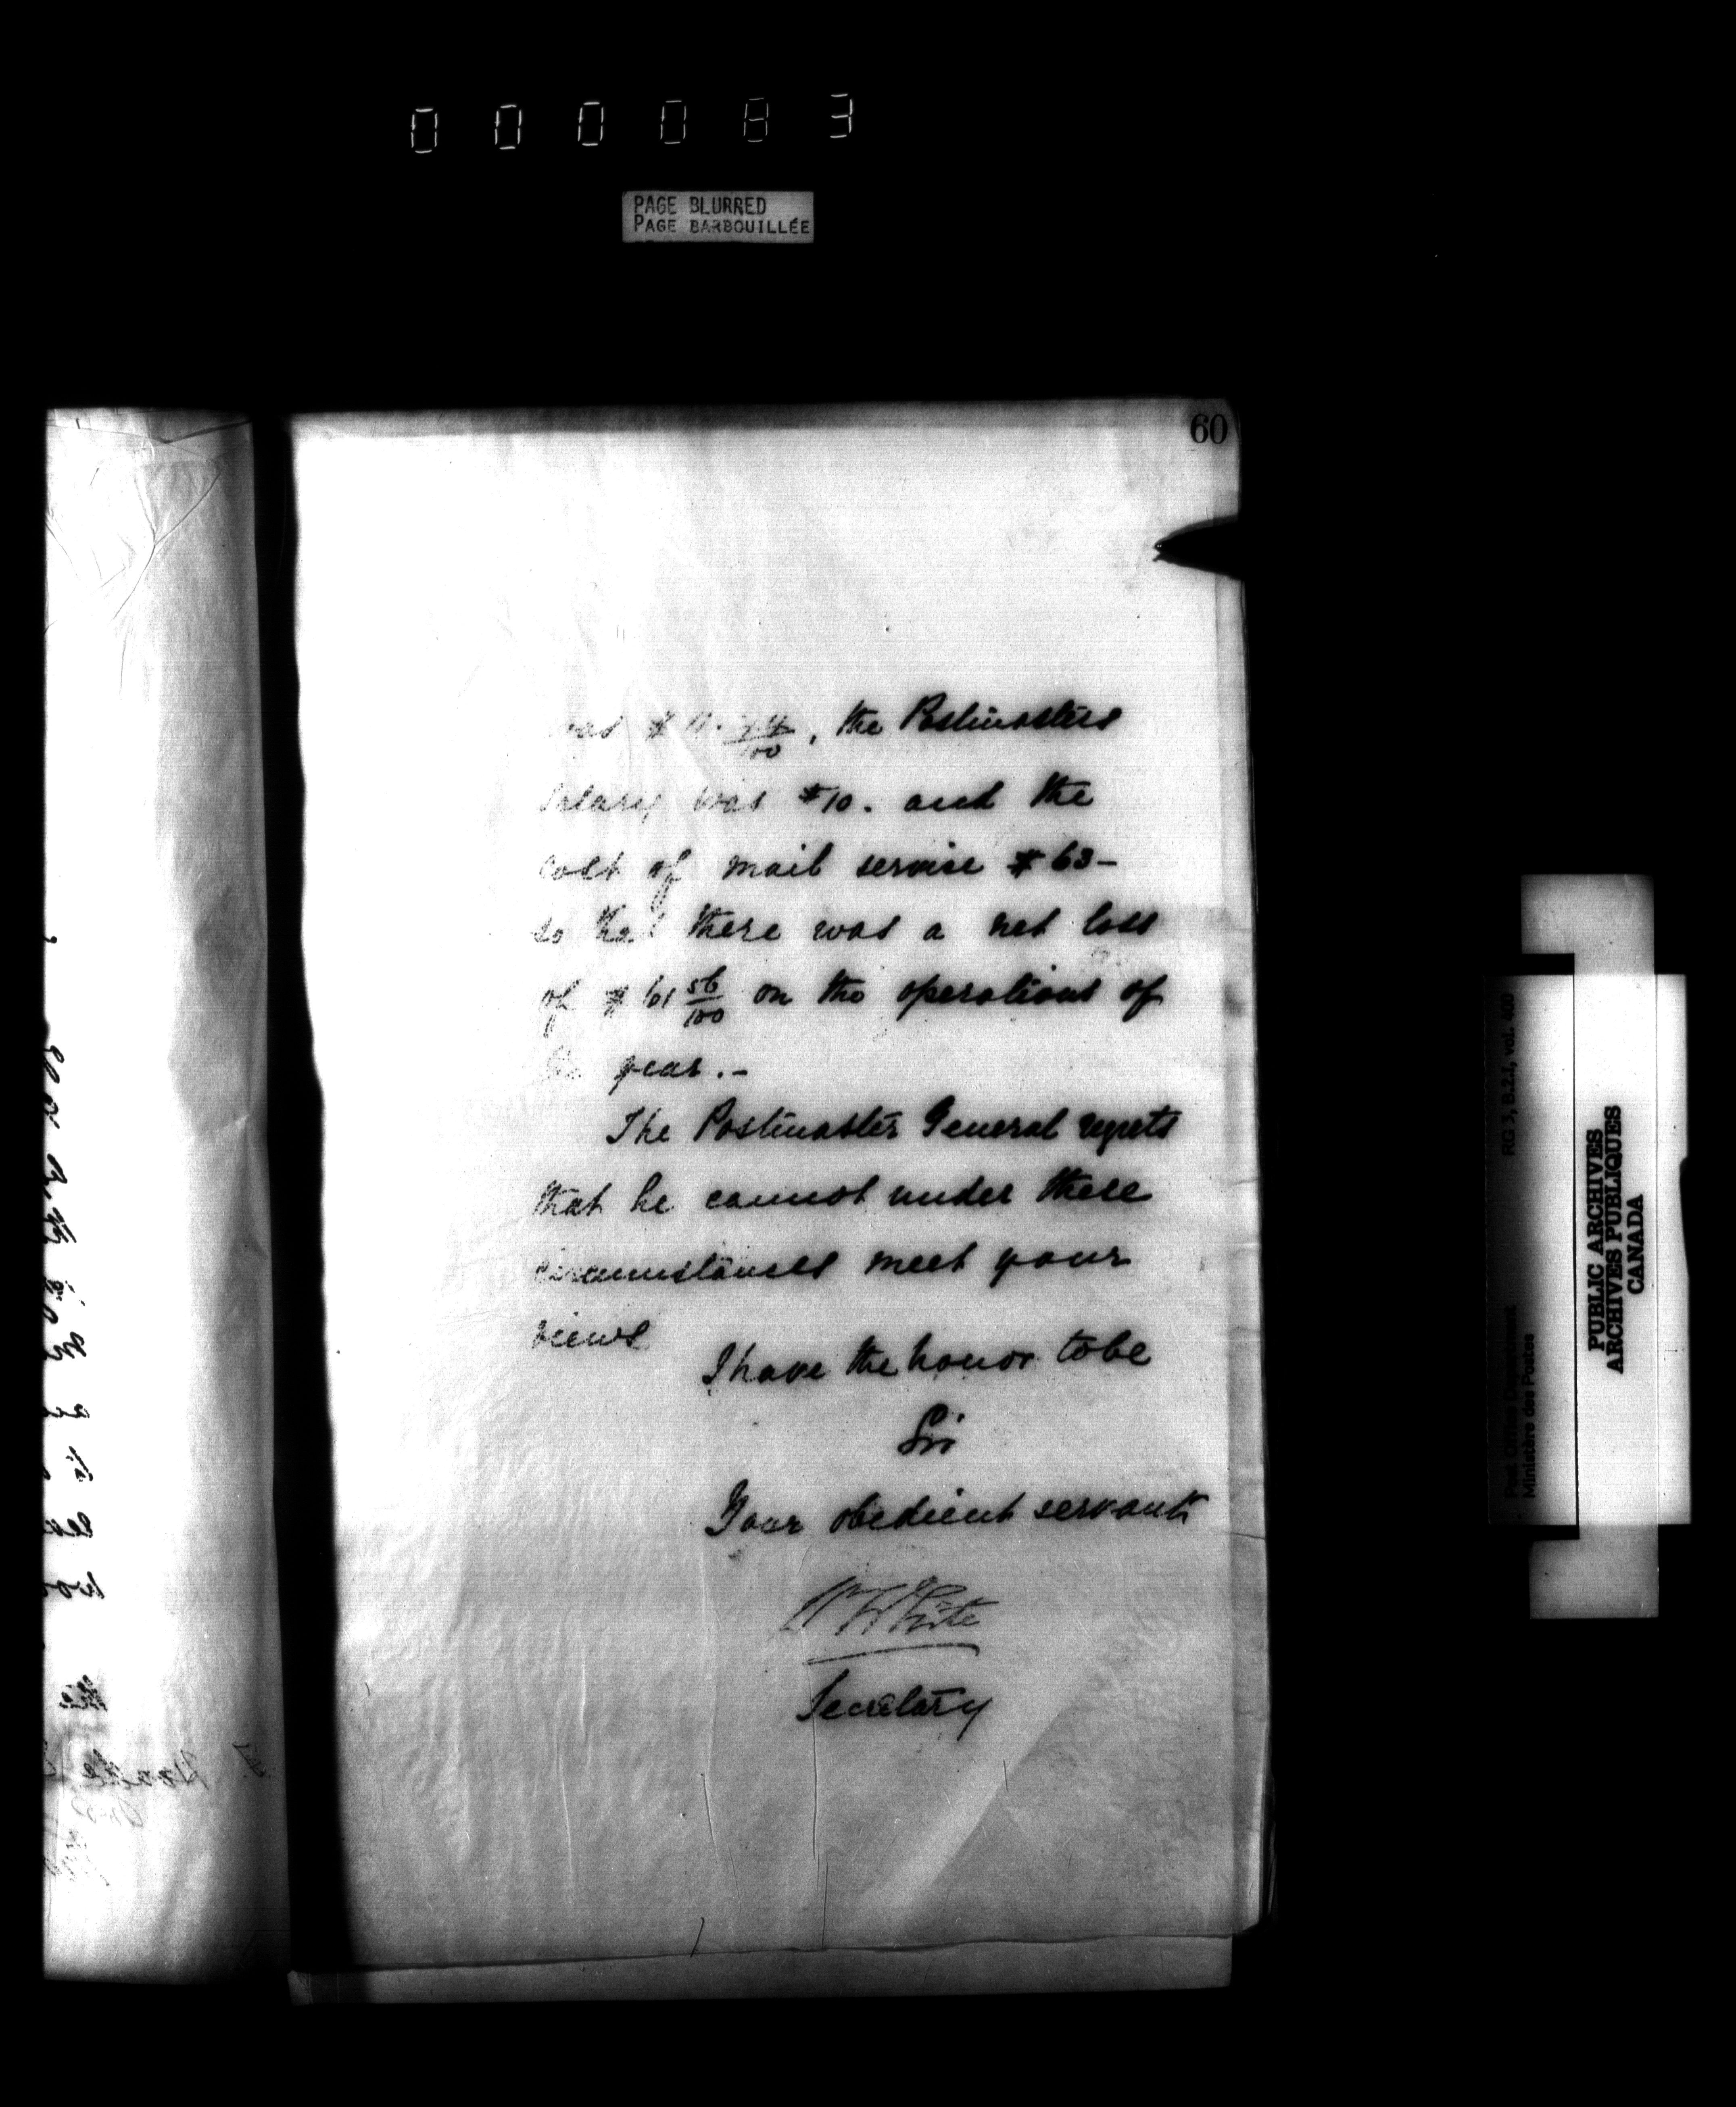 000083
PAGE BLURRED
PAGE BARBOUILLÉE
60
was $ 11. 44/100, the Postmasters
salary was $10. and the
cost of mail service $63–
so that there was a net loss
of $61 56/100 on the operations of
the year.–
The Postmaster General regrets
that he cannot under these
circumstances meet your
views
I have the honor to be
Sir
Your obedient servant
W White
Secretary
RG 3, B.2.1, vol. 400
Post Office Department
Ministère des Postes
PUBLIC ARCHIVES
ARCHIVES PUBLIQUES
CANADA